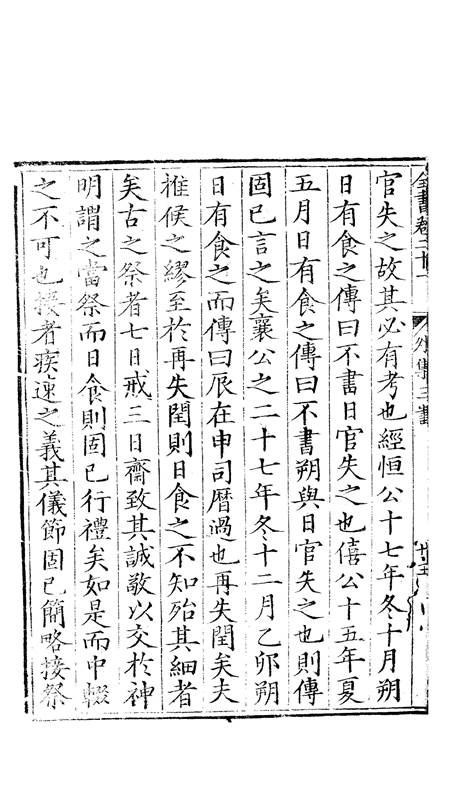 全書卷二十一 外集三 書
官失之故其必有考也經恒公十七年冬十月朔
日有食之傳曰不書日官失之也僖公十五年夏
五月日有食之傳曰不書朔與日官失之也則傳
固已言之矣襄公之二十七年冬十二月乙卯朔
日有食之而傳曰辰在申司曆過也再失閏矣夫
推候之繆至於再失閏則日食之不知殆其細者
矣古之祭者七日戒三日齋致其誠敬以交於神
明謂之當祭而日食則固已行禮矣如是而中輟
之不可也接者疾速之義其儀節固已簡略接祭